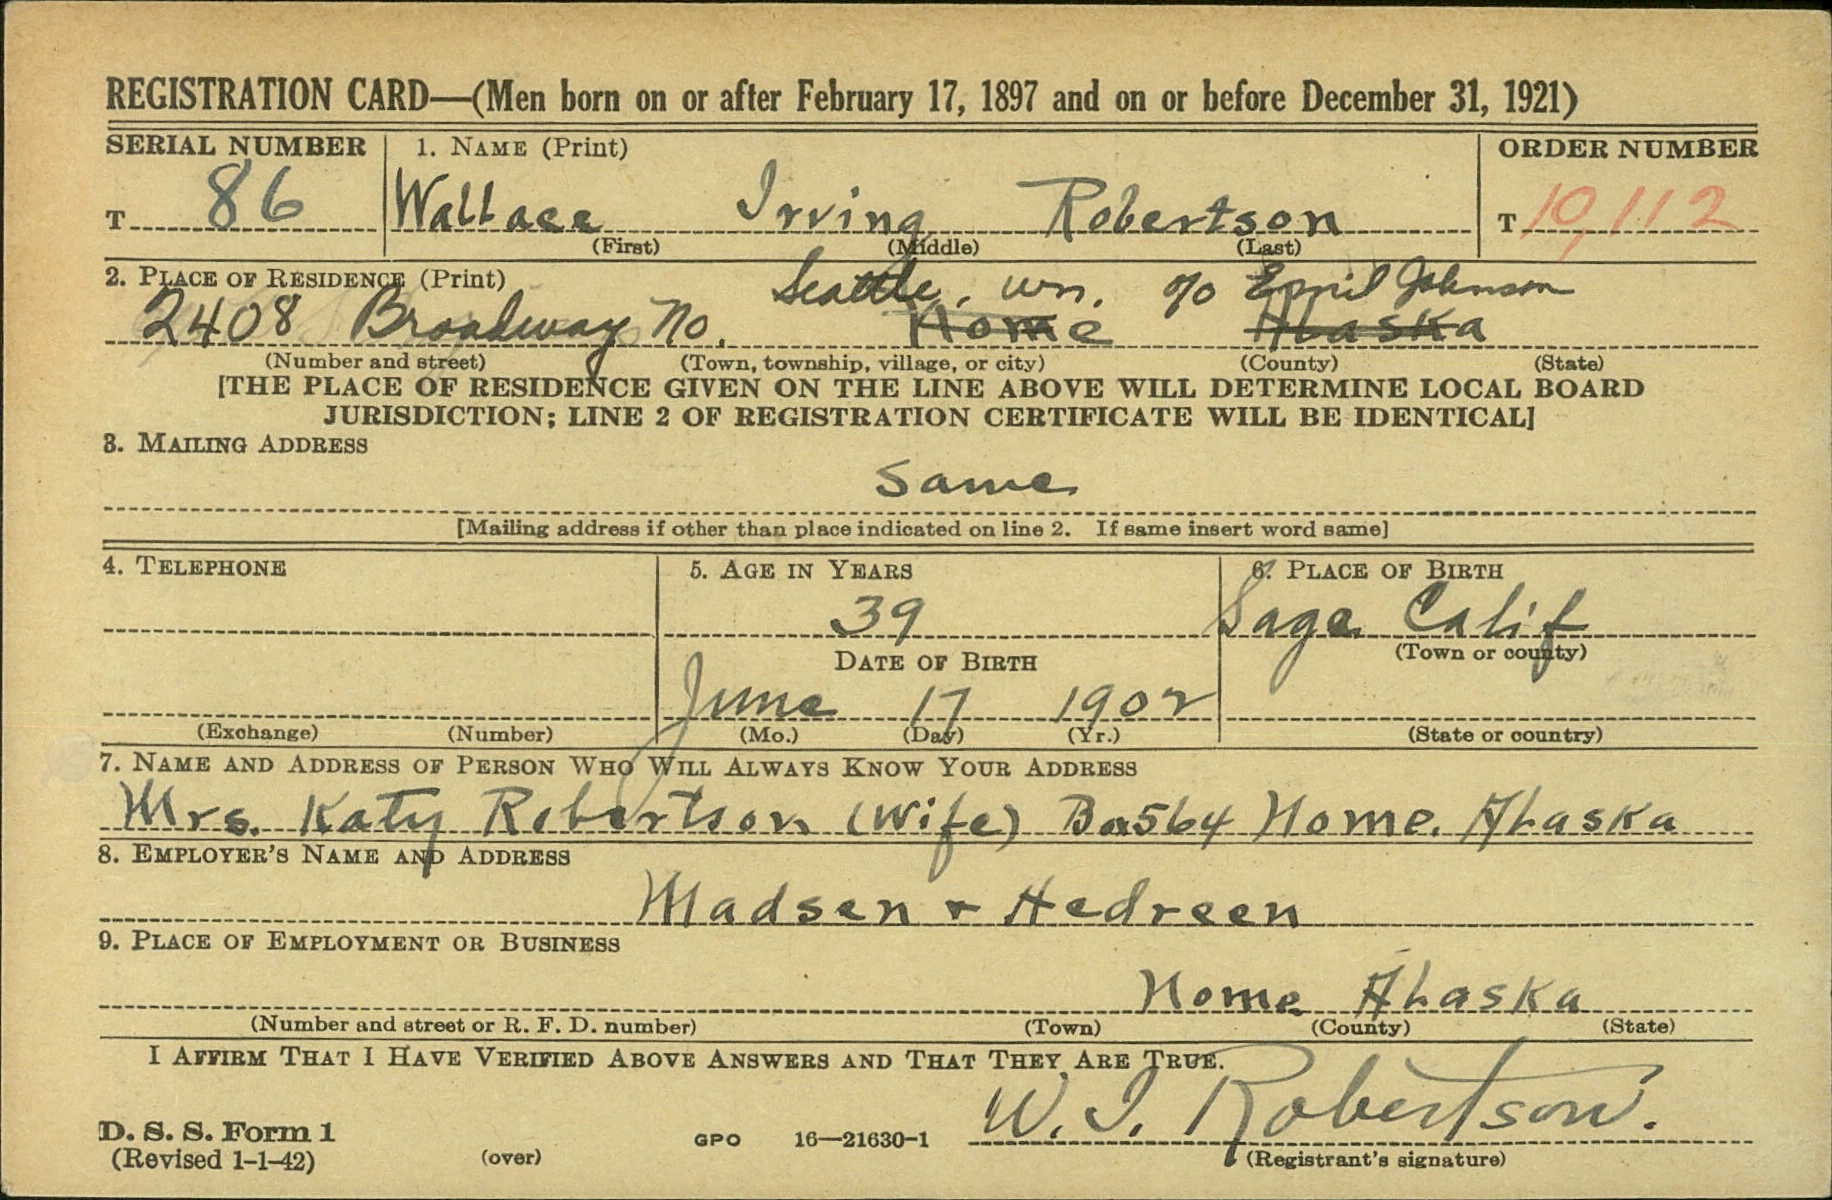 REGISTRATION CARD—(Men born on or after February 17, 1897 and on or before December 31, 1921)
SERIAL NUMBER 1. NAME (Print) ORDER NUMBER
T 86 Wallace Irving Robertson T 10,112
(First) (Middle) (Last)
2. PLACE OF RESIDENCE (Print) Seattle, Wn. % Emil Johnson
2408 Broadway No. Nome Alaska
(Number and street) (Town, township, village, or city) (County) (State)
[THE PLACE OF RESIDENCE GIVEN ON THE LINE ABOVE WILL DETERMINE LOCAL BOARD
JURISDICTION; LINE 2 OF REGISTRATION CERTIFICATE WILL BE IDENTICAL]
3. MAILING ADDRESS
Same
[Mailing address if other than place indicated on line 2. If same insert word same]
4. TELEPHONE 5. AGE IN YEARS 6. PLACE OF BIRTH
39 Sage Calif
DATE OF BIRTH (Town or county)
June 17 1902
(Exchange) (Number) (Mo.) (Day) (Yr.) (State or country)
7. NAME AND ADDRESS OF PERSON WHO WILL ALWAYS KNOW YOUR ADDRESS
Mrs. Katy Robertson (Wife) Box 564 Nome. Alaska
8. EMPLOYER'S NAME AND ADDRESS
Madsen + Hedreen
9. PLACE OF EMPLOYMENT OR BUSINESS
Nome Alaska
(Number and street or R. F. D. number) (Town) (County) (State)
I AFFIRM THAT I HAVE VERIFIED ABOVE ANSWERS AND THAT THEY ARE TRUE.
W. I. Robertson.
D. S. S. Form 1
(Revised 1-1-42) (over) GPO 16—21630-1 (Registrant's signature)